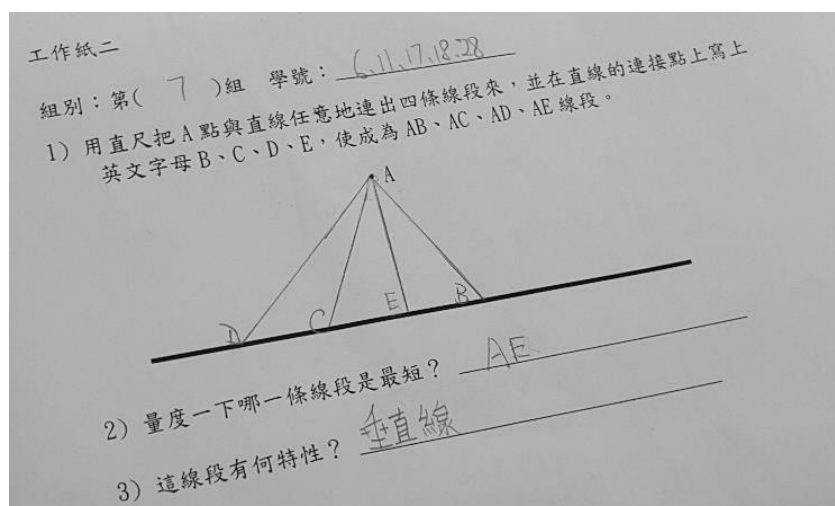 工作紙二
組別：第( 7 )組 學號：6.11.17.18.28
1) 用直尺把 A 點與直線任意地連出四條線段來，並在直線的連接點上寫上
英文字母 B、C、D、E，使成為 AB、AC、AD、AE 線段。
A
D C E B
2) 量度一下哪一條線段是最短？ AE
3) 這線段有何特性？ 垂直線